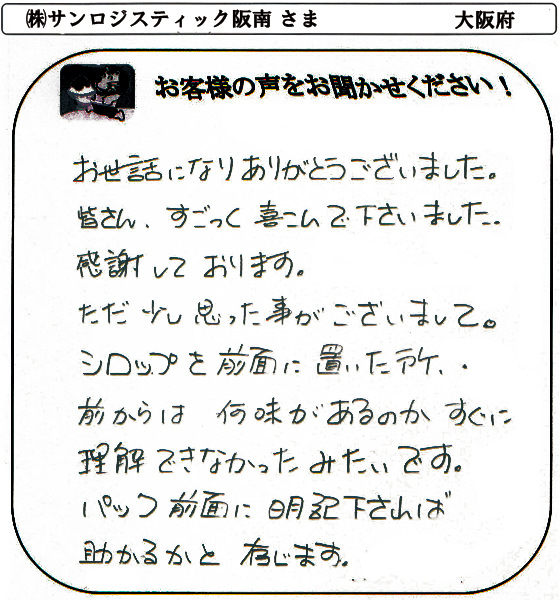 ㈱サンロジスティック阪南 さま 大阪府
お客様の声をお聞かせください！
お世話になりありがとうございました。
皆さん、すごっく 喜こんで下さいました。
感謝して おります。
ただ 少し 思った事がございまして。
シロップを 前面に 置いた所、・
前からは 何味があるのか すぐに
理解できなかったみたいです。
パック 前面に 明記下されば
助かるかと 存じます。